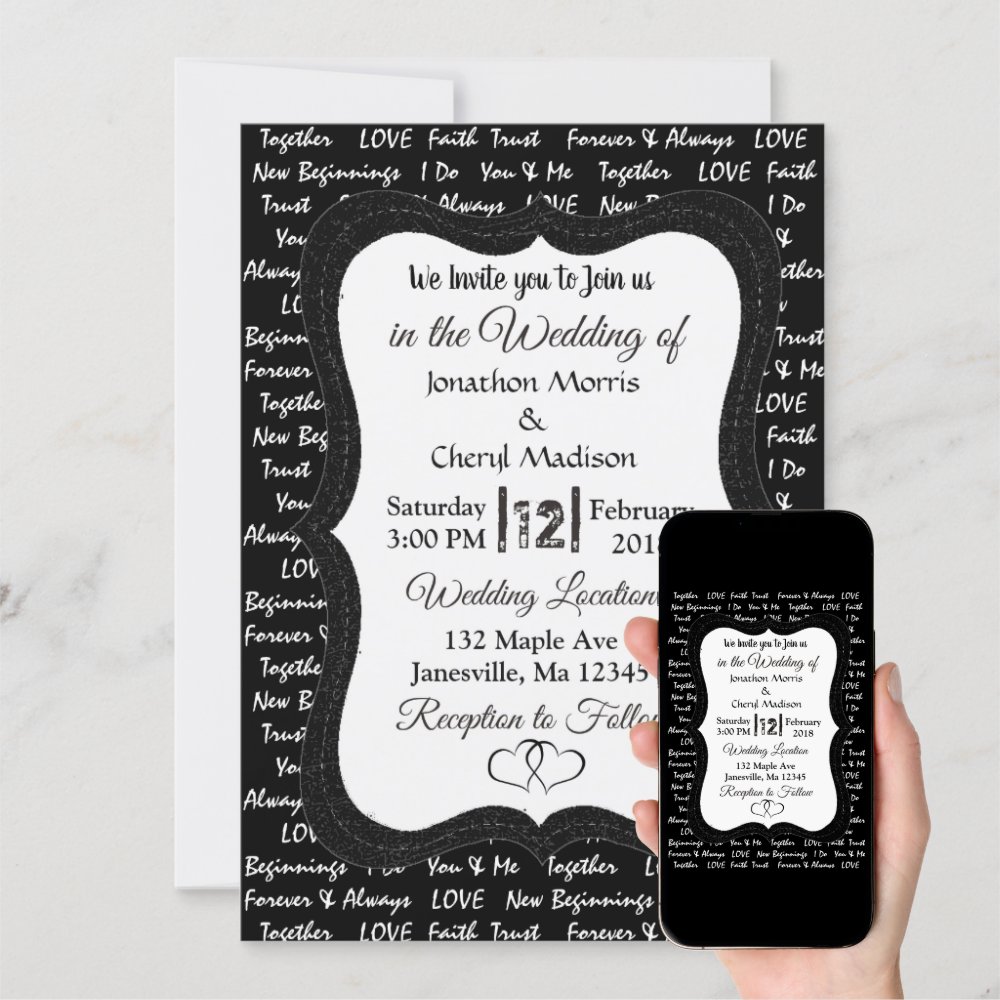 Together LOVE Faith Trust Forever & Always LOVE
New Beginnings I Do You & Me Together LOVE Faith
Trust Always LOVE New I Do
You &
Always ether
LO
Beginn Trust
Forever & Me
Together LOVE
New Beg Faith
Trust I Do
You
Always
LOV
Beginnin
Forever &
Together
New Beg
Trust
You
Always
LOV
Beginnings You & Me Together
Forever & Always LOVE New Beginnings
Together LOVE Faith Trust Forever &
We Invite you to Join us
in the Wedding of
Jonathon Morris
&
Cheryl Madison
Saturday |12| February
3:00 PM 2018
Wedding Location
132 Maple Ave
Janesville, Ma 12345
Reception to Follow
Together LOVE Faith Trust Forever & Always LOVE
New Beginnings I Do You & Me Together LOVE Faith
We Invite you to Join us
in the Wedding of
Jonathon Morris
&
Cheryl Madison
Saturday |12| February
3:00 PM 2018
Wedding Location
132 Maple Ave
Janesville, Ma 12345
Reception to Follow
Together LOVE
Forever & Always LOVE New Beginnings I Do You & Me
Together LOVE Faith Trust Forever & Always LOVE